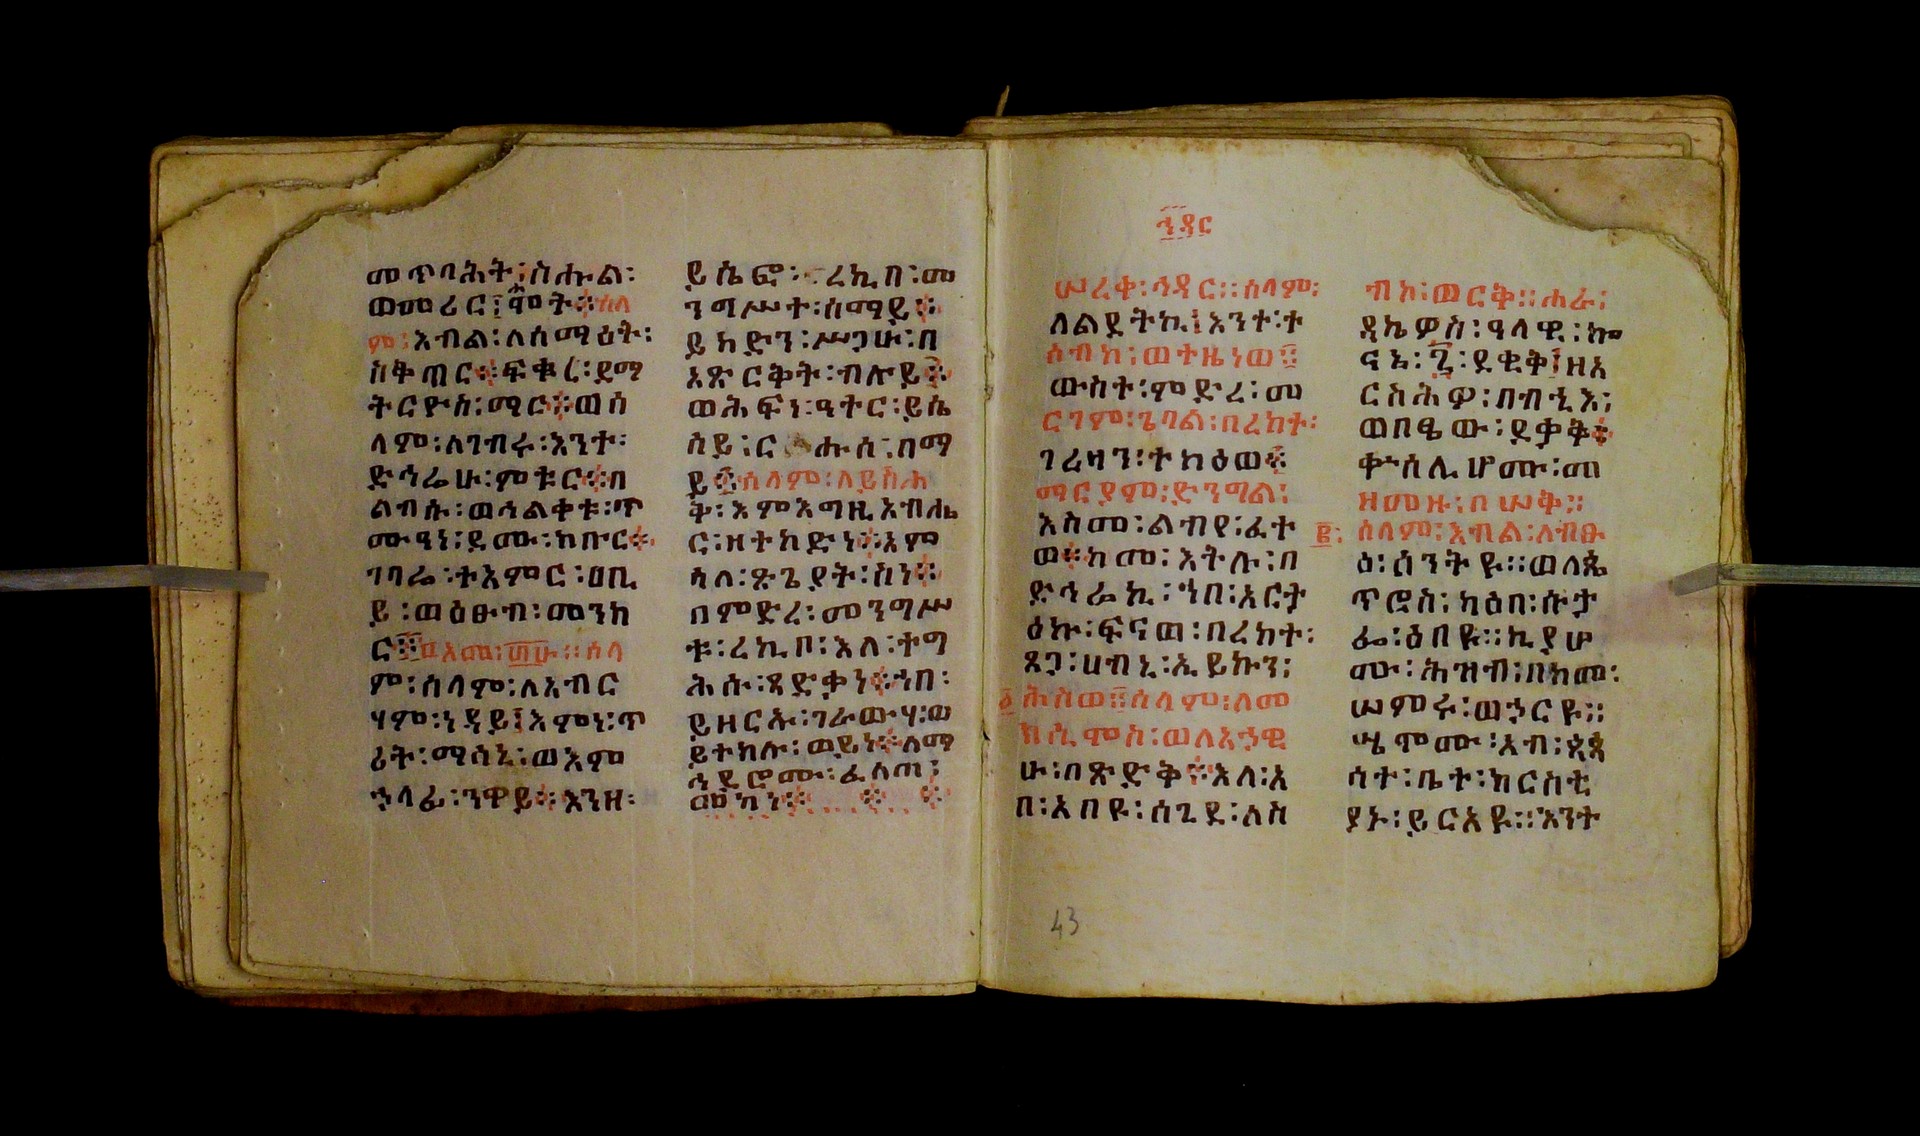 መጥባሕት፤ስሑል፡
ወመሪር፤ቆመት፨ሰላ
ም፡እብል፡ለሰማዕት፡
ከቅጠር፨ፍቁረ፡ደማ
ትርዮስ፡ማር፨ወሰ
ላም፡ለገብሩ፡እንተ፡
ድኅሬሁ፡ምቱር፨በ
ልብሱ፡ወኅልቀቱ፡ጥ
ሙዓነ፡ደሙ፡ከቡር፨
ገባሬ፡ተአምር፡ዐቢ
ይ፡ወዕፁብ፡መንክ
ር፨
ም፡ሰላም፡ለአብር
ሃም፡ነዳይ፤እምነ፡ጥ
ሪት፡ማሳኒ፡ወእም
ኃላፊ፡ንዋይ፨እንዘ፡
ይሴፎ፡ረኪበ፡መ
ንግሥተ፡ሰማይ፨
ይክድን፡ሥጋሁ፡በ
አጽርቅት፡ብሉይ፨
ወሕፍነ፡ዓተር፡ይሴ
ሰይ፡ርሑሰ፡በማ
ይ፨ሰላም፡ለይስሐ
ቅ፡እምእግዚአብሔ
ር፡ዘተክድነ፨እም
ካለ፡ጽጌያት፡ስነ፨
በምድረ፡መንግሥ
ቱ፡ረኪቦ፡እለ፡ተግ
ሕሱ፡ጻድቃነ፨ኀበ፡
ይዘርኡ፡ገራውሃ፡ወ
ይተክሉ፡ወይነ፨ለማ
ኅደሮሙ፡ፈለጠ፡
ምካነ፨
ኅዳር
ሠረቀ፡ኅዳር፡፡ሰላም፡
ለልደትኪ፤እንተ፡ተ
ሰብከ፡ወተዜነወ፨
ውስተ፡ምድረ፡መ
ርገም፡ጌባል፡በረከተ፡
ገረዛን፡ተክዕወ፨
ማርያም፡ድንግል፡
እስመ፡ልብየ፡ፈተ
ወ፨ከመ፡እትሉ፡በ
ድኅሬኪ፡ኀበ፡አርት
ዕኩ፡ፍናወ፡በረከተ፡
ጸጋ፡ሀብኒ፡ኢይኩን፡
ሕስወ፨ሰላም፡ለመ
ክሲሞስ፡ወለአኃዊ
ሁ፡በጽድቅ፨እለ፡አ
በ፡አበዩ፡ሰጊደ፡ለስ
ብኮ፡ወርቅ፡፡ሐራ፡
ዳኬዎስ፡ዓላዊ፡ኰ
ናኔ፡፯፡ደቂቅ፤ዘአ
ርስሕዎ፡በብዲእ፡
ወበፄው፡ደቃቅ፨
ቀኀሰሊሆሙ፡መ
ዘመዙ፡በሠቅ፡፡
፪፡ሰላም፡እብል፡ለብፁ
ዕ፡ሰንትዩ፡፡ወለጴ
ጥሮስ፡ካዕበ፡ሱታ
ፌ፡ዕበዩ፡፡ኪያሆ
ሙ፡ሕዝብ፡በከመ፡
ሠምሩ፡ወኃርዩ፡፡
ሤሞሙ፡አብ፡ጳጳ
ሳተ፡ቤተ፡ክርስቲ
ያኑ፡ይርአዩ፡፡እንተ
43